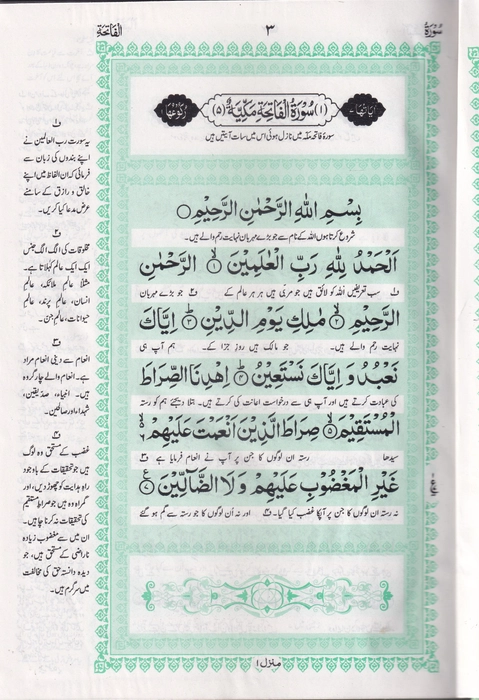 سورة
٣
الفاتحة
اٰیاتھا ٧
(١) سُوۡرَۃُ الۡفَاتِحَۃِ مَکِّیَّۃٌ (٥)
رکوعھا ١
سورۂ فاتحہ مکہ میں نازل ہوئی اس میں سات آیتیں ہیں
بِسۡمِ اللّٰهِ الرَّحۡمٰنِ الرَّحِيۡمِ
شروع کرتا ہوں اللہ کے نام سے جو بڑے مہربان نہایت رحم والے ہیں۔
اَلۡحَمۡدُ لِلّٰهِ رَبِّ الۡعٰلَمِيۡنَ ۙ﴿۱﴾ الرَّحۡمٰنِ
١ سب تعریفیں اللہ کو لائق ہیں جو مربی ہیں ہر ہر عالم کے ٢ جو بڑے مہربان
الرَّحِيۡمِ ۙ﴿۲﴾ مٰلِكِ يَوۡمِ الدِّيۡنِ ؕ﴿۳﴾ اِيَّاكَ
نہایت رحم والے ہیں۔ جو مالک ہیں روز جزا کے۔ ہم آپ ہی
نَعۡبُدُ وَ اِيَّاكَ نَسۡتَعِيۡنُ ؕ﴿۴﴾ اِهۡدِنَا الصِّرَاطَ
کی عبادت کرتے ہیں اور آپ ہی سے درخواست اعانت کی کرتے ہیں۔ بتلا دیجئے ہم کو رستہ
الۡمُسۡتَقِيۡمَ ۙ﴿۵﴾ صِرَاطَ الَّذِيۡنَ اَنۡعَمۡتَ عَلَيۡهِمۡ ۙ﴿۶﴾
سیدھا رستہ ان لوگوں کا جن پر آپ نے انعام فرمایا ہے ٣
غَيۡرِ الۡمَغۡضُوۡبِ عَلَيۡهِمۡ وَلَا الضَّآلِّيۡنَ ﴿۷﴾
نہ رستہ ان لوگوں کا جن پر آپکا غضب کیا گیا۔ ٤ اور نہ ان لوگوں کا جو رستہ سے گم ہو گئے
منزل ١
١
یہ سورت رب العالمین نے
اپنے بندوں کی زبان سے
فرمائی کہ ان الفاظ میں اپنے
خالق و رازق کے سامنے
عرض مدعا کیا کریں۔
٢
مخلوقات کی الگ الگ جنس
ایک ایک عالم کہلاتا ہے۔
مثلاً عالم ملائکہ، عالم
انسان، عالم پرند، عالم
حیوانات، عالم جن۔
٣
انعام سے دینی انعام مراد
ہے۔ انعام والے چار گروہ
ہیں۔ انبیاء، صدیقین،
شہدا اور صالحین۔
٤
غضب کے مستحق وہ لوگ
ہیں جو تحقیقات کے باوجود
راہ ہدایت کو چھوڑ دیں، اور
گمراہ وہ ہیں جو صراط مستقیم
کی تحقیقات نہ کرنا چاہیں۔
ان میں سے مغضوب زیادہ
ناراضی کے مستحق ہیں، جو
دیدہ دانستہ حق کی مخالفت
میں سرگرم ہیں۔